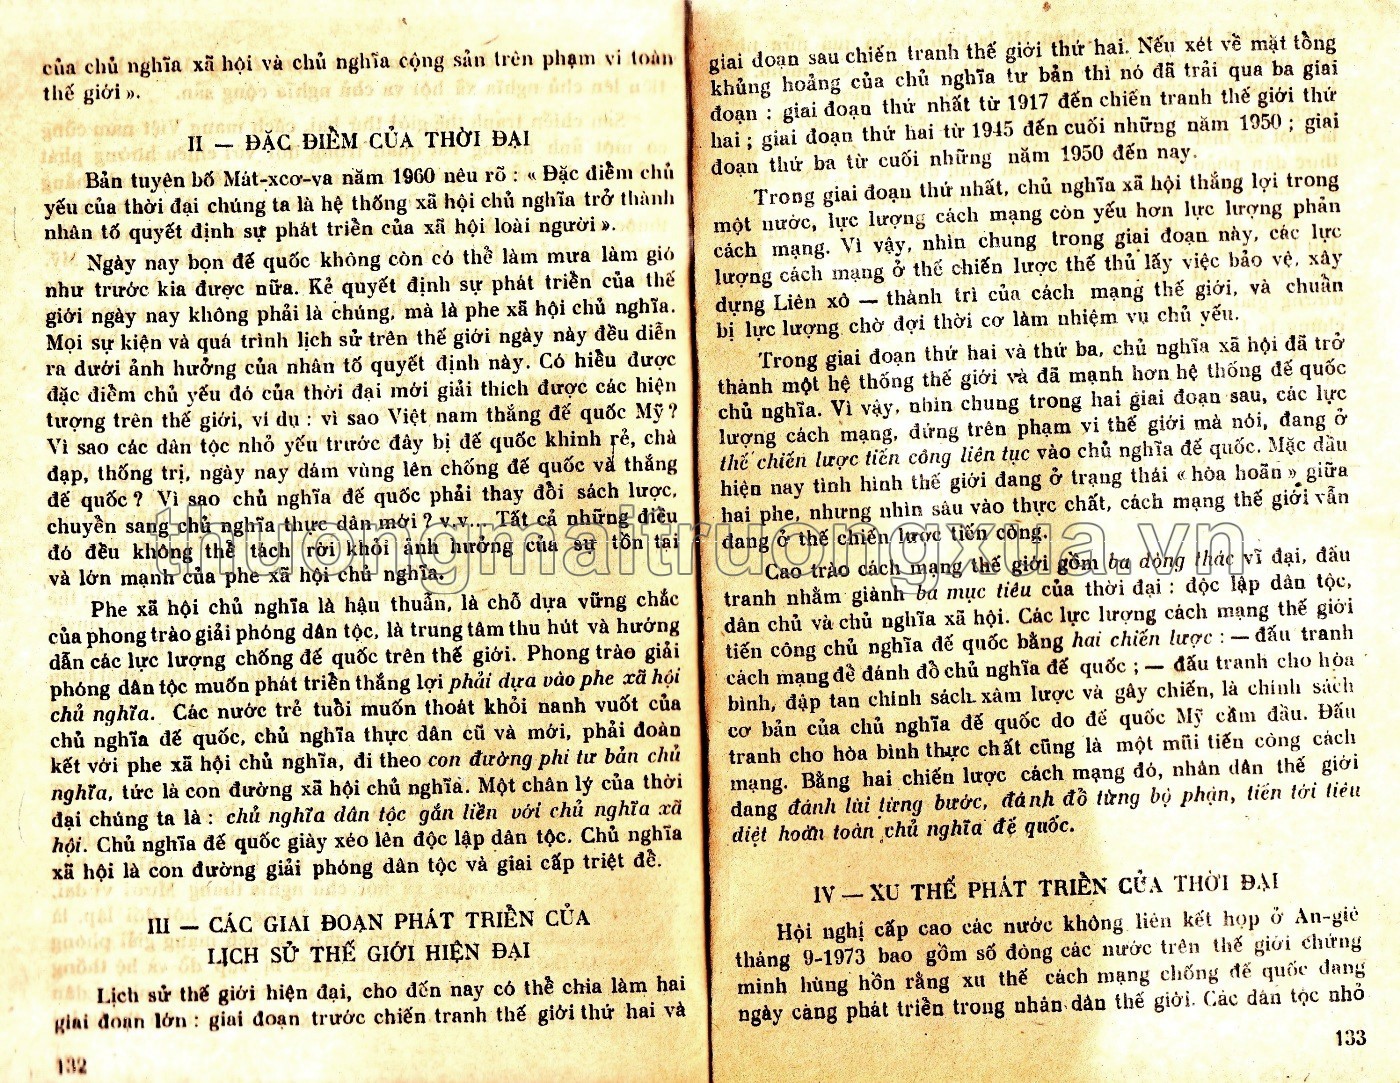 của chủ nghĩa xã hội và chủ nghĩa cộng sản trên phạm vi toàn
thế giới ».
II — ĐẶC ĐIỂM CỦA THỜI ĐẠI
Bản tuyên bố Mát-xcơ-va năm 1960 nêu rõ : « Đặc điểm chủ
yếu của thời đại chúng ta là hệ thống xã hội chủ nghĩa trở thành
nhân tố quyết định sự phát triển của xã hội loài người ».
Ngày nay bọn đế quốc không còn có thể làm mưa làm gió
như trước kia được nữa. Kẻ quyết định sự phát triển của thế
giới ngày nay không phải là chúng, mà là phe xã hội chủ nghĩa.
Mọi sự kiện và quá trình lịch sử trên thế giới ngày này đều diễn
ra dưới ảnh hưởng của nhân tố quyết định này. Có hiểu được
đặc điểm chủ yếu đó của thời đại mới giải thích được các hiện
tượng trên thế giới, ví dụ : vì sao Việt nam thắng đế quốc Mỹ ?
Vì sao các dân tộc nhỏ yếu trước đây bị đế quốc khinh rẻ, chà
đạp, thống trị, ngày nay dám vùng lên chống đế quốc và thắng
đế quốc ? Vì sao chủ nghĩa đế quốc phải thay đổi sách lược,
chuyển sang chủ nghĩa thực dân mới ? v.v... Tất cả những điều
đó đều không thể tách rời khỏi ảnh hưởng của sự tồn tại
và lớn mạnh của phe xã hội chủ nghĩa.
Phe xã hội chủ nghĩa là hậu thuẫn, là chỗ dựa vững chắc
của phong trào giải phóng dân tộc, là trung tâm thu hút và hướng
dẫn các lực lượng chống đế quốc trên thế giới. Phong trào giải
phóng dân tộc muốn phát triển thắng lợi phải dựa vào phe xã hội
chủ nghĩa. Các nước trẻ tuổi muốn thoát khỏi nanh vuốt của
chủ nghĩa đế quốc, chủ nghĩa thực dân cũ và mới, phải đoàn
kết với phe xã hội chủ nghĩa, đi theo con đường phi tư bản chủ
nghĩa, tức là con đường xã hội chủ nghĩa. Một chân lý của thời
đại chúng ta là : chủ nghĩa dân tộc gắn liền với chủ nghĩa xã
hội. Chủ nghĩa đế quốc giày xéo lên độc lập dân tộc. Chủ nghĩa
xã hội là con đường giải phóng dân tộc và giai cấp triệt để.
III — CÁC GIAI ĐOẠN PHÁT TRIỂN CỦA
LỊCH SỬ THẾ GIỚI HIỆN ĐẠI
Lịch sử thế giới hiện đại, cho đến nay có thể chia làm hai
giai đoạn lớn : giai đoạn trước chiến tranh thế giới thứ hai và
132
giai đoạn sau chiến tranh thế giới thứ hai. Nếu xét về mặt tổng
khủng hoảng của chủ nghĩa tư bản thì nó đã trải qua ba giai
đoạn : giai đoạn thứ nhất từ 1917 đến chiến tranh thế giới thứ
hai ; giai đoạn thứ hai từ 1945 đến cuối những năm 1950 ; giai
đoạn thứ ba từ cuối những năm 1950 đến nay.
Trong giai đoạn thứ nhất, chủ nghĩa xã hội thắng lợi trong
một nước, lực lượng cách mạng còn yếu hơn lực lượng phản
cách mạng. Vì vậy, nhìn chung trong giai đoạn này, các lực
lượng cách mạng ở thế chiến lược thế thủ lấy việc bảo vệ, xây
dựng Liên xô — thành trì của cách mạng thế giới, và chuẩn
bị lực lượng chờ đợi thời cơ làm nhiệm vụ chủ yếu.
Trong giai đoạn thứ hai và thứ ba, chủ nghĩa xã hội đã trở
thành một hệ thống thế giới và đã mạnh hơn hệ thống đế quốc
chủ nghĩa. Vì vậy, nhìn chung trong hai giai đoạn sau, các lực
lượng cách mạng, đứng trên phạm vi thế giới mà nói, đang ở
thế chiến lược tiến công liên tục vào chủ nghĩa đế quốc. Mặc dầu
hiện nay tình hình thế giới đang ở trạng thái « hòa hoãn » giữa
hai phe, nhưng nhìn sâu vào thực chất, cách mạng thế giới vẫn
đang ở thế chiến lược tiến công.
Cao trào cách mạng thế giới gồm ba dòng thác vĩ đại, đấu
tranh nhằm giành ba mục tiêu của thời đại : độc lập dân tộc,
dân chủ và chủ nghĩa xã hội. Các lực lượng cách mạng thế giới
tiến công chủ nghĩa đế quốc bằng hai chiến lược : — đấu tranh
cách mạng để đánh đổ chủ nghĩa đế quốc ; — đấu tranh cho hòa
bình, đập tan chính sách xâm lược và gây chiến, là chính sách
cơ bản của chủ nghĩa đế quốc do đế quốc Mỹ cầm đầu. Đấu
tranh cho hòa bình thực chất cũng là một mũi tiến công cách
mạng. Bằng hai chiến lược cách mạng đó, nhân dân thế giới
đang đánh lùi từng bước, đánh đổ từng bộ phận, tiến tới tiêu
diệt hoàn toàn chủ nghĩa đế quốc.
IV — XU THẾ PHÁT TRIỂN CỦA THỜI ĐẠI
Hội nghị cấp cao các nước không liên kết họp ở An-giê
tháng 9-1973 bao gồm số đông các nước trên thế giới chứng
minh hùng hồn rằng xu thế cách mạng chống đế quốc đang
ngày càng phát triển trong nhân dân thế giới. Các dân tộc nhỏ
133
thuongmaitruongxua.vn